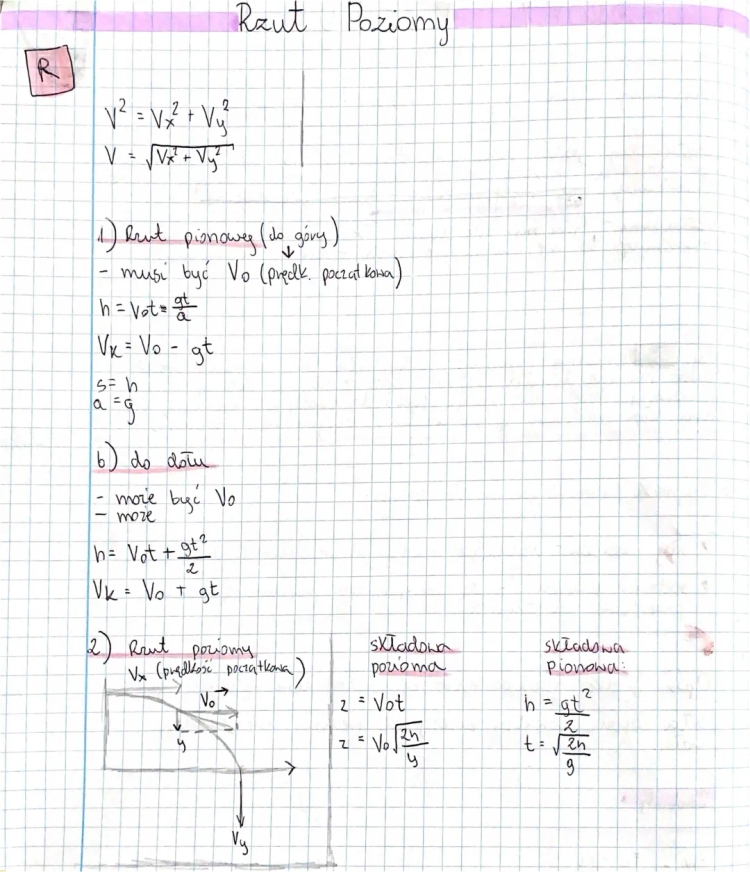 Rzut Poziomy
R
V² = Vx² + Vy²
V = √(Vx² + Vy²)
1) Rzut pionowy (do góry)
↓
- musi być V₀ (prędk. początkowa)
h = V₀t = gt/a
Vk = V₀ - gt
s = h
a = g
b) do dołu
- może być V₀
- może
h = V₀t + gt²/2
Vk = V₀ + gt
2) Rzut poziomy
Vx (prędkość początkowa)
V₀→
y
Vy
składowa
pozioma
z = V₀t
z = V₀√(2h/y)
składowa
pionowa:
h = gt²/2
t = √(2h/g)